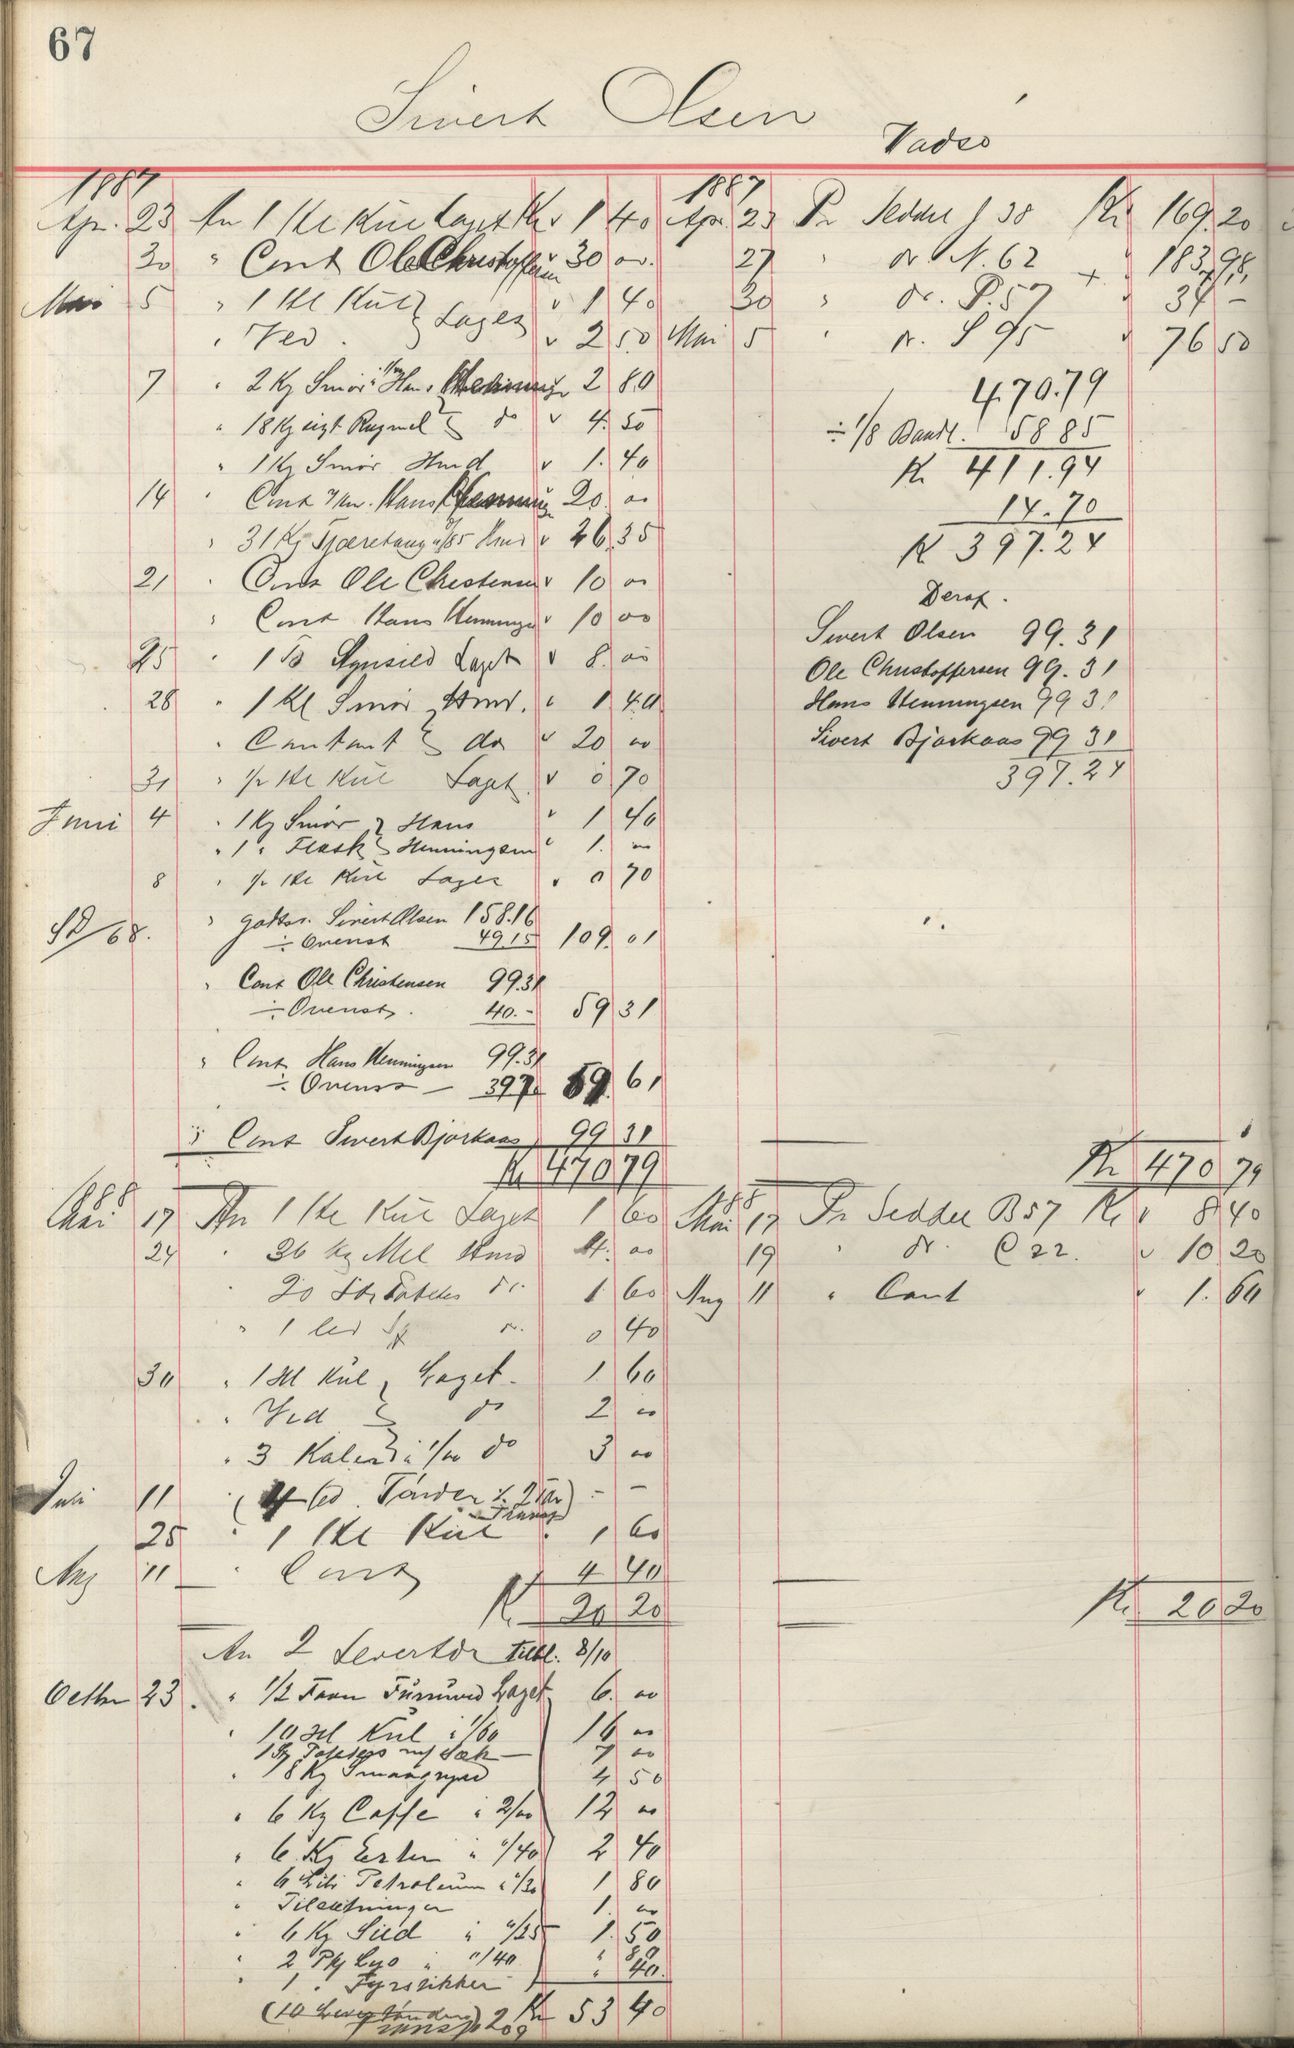 67
Sivert Olsen
Vadsö
1887
Apr. 23 An 1 Hl Kul Laget Kr 1 40
30 " Cont Ole Christoffersen " 30 00
Mai 5 " 1 Hl Kul } Laget " 1 40
" Ved. " 2 50
7 " 2 Kg Smör Hans Henning 2 80
" 18 Kg sigt Rugmel } do 4. 50
" 1 Kg Smör Hmd 1. 40
14 " Cont Hans Henning 20. 00
" 31 Kg Tjæretaug a /85 Hmd 26. 35
21 " Cont Ole Christensen 10 00
" Cont Hans Henninge 10 00
25 " 1 Laget 8. 00
28 " 1 Kl Smör } Hmd. 1 40
" Contant } do 20 00
31 " 1/2 Hl Kul Laget 0 70
Juni 4 " 1 Kg Smör } Hans 1 40
" 1 " Flesk } Henningsen 1. 00
8 " 1/2 Hl Kul Laget 0 70
SD/68. " godtsr. Sivert Olsen 158.16
÷ Ovenst 49.15 109. 01
" Cont Ole Christensen 99.31
÷ Ovenst. 40.- 59 31
" Cont Hans Henningsen 99.31
÷ Ovenst 39.70 59. 61
" Cont Sivert Bjorkaas 99 31
Kr 470 79
1887
Apr 23 Pr Seddel J 38 Kr 169. 20
27 " do. N. 62 " 183. 98
30 " do. P. 57 + " 34 -
Mai 5 " do. S 95 " 76 50
470.79
÷ 1/8 Baadl. 58 85
Kr 411.94
14.70
Kr 397.24
Deraf.
Sivert Olsen 99.31
Ole Christoffersen 99.31
Hans Henningsen 99 31
Sivert Bjorkaas 99 31
397.24
Kr 470 79
1888
Mai 17 An 1 Hl Kul Laget 1 60
24 " 36 Kg Mel Hmd 4. 00
20 do. 1 60
" 1 do. 0 40
30 " 1 Hl Kul } Laget. 1 60
" Ved } do 2 00
" 3 a 1/00 do 3 00
Juli 11 " (4 Led. Tönder - -
25 " 1 Hl Kul " 1 60
Aug 11 " Cont 4 40
Kr. 20 20
88
Mai 17 Pr Seddel B 57 Kr 8 40
19 " do. C 22. 10 20
Aug 11 " Cont 1. 60
Kr. 20 20
An 2 Levertdr tilbl. 8/10
Octbr 23 " 1/2 Favn Furuved Laget 6. 00
" 10 Hl Kul a 1/60 16 00
1 Poteters m/ Sæk 7 00
" 18 Kg Smaagryn 4 50
" 6 Kg Caffe a 2/00 12 00
" 6 Kg Erter a "/40 2 40
" 6 Litr Petroleum a "/30 1 80
" Tilsætninger 1. 00
" 6 Kg Sild a "/25 1. 50
" 2 Pk Lys a "/40 " 80
" 1 " Fyrstikker " 40.
Kr 53 40
(10 Levertönder) 209